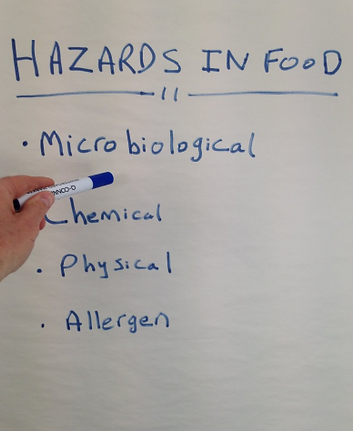 HAZARDS IN FOOD
• Microbiological
Chemical
• Physical
• Allergen